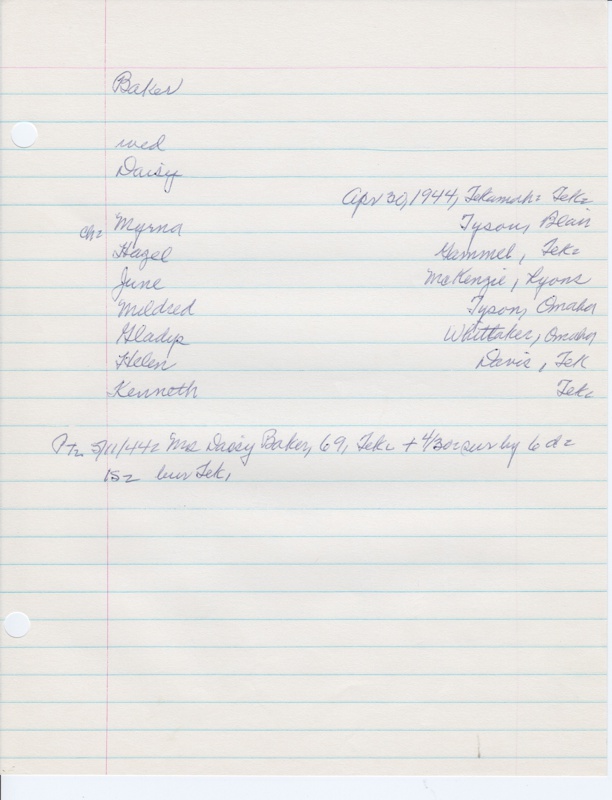 Baker
wed
Daisy
Apr 30, 1944, Tekamah= Tek=
ch= Myrna Tyson, Blair
Hazel Gammel, Tek=
June McKenzie, Lyons
Mildred Tyson, Omaha
Gladys Whittaker, Omaha
Helen Davis, Tek
Kenneth Tek=
5/11/44= Mrs Daisy Baker, 69, Tek= + 4/30= sur by 6 d=
1s= bur Tek,